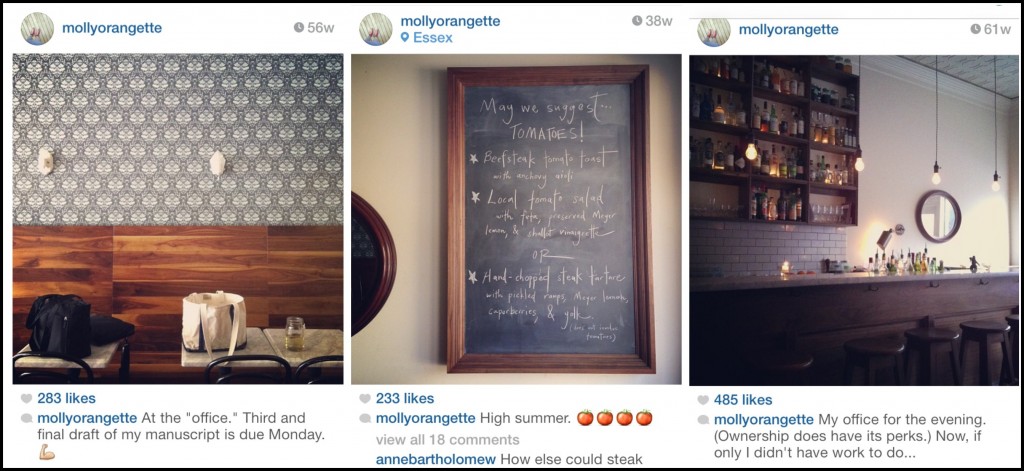 mollyorangette
56w
283 likes
mollyorangette At the "office." Third and
final draft of my manuscript is due Monday.
💪
mollyorangette
38w
Essex
May we suggest...
TOMATOES!
★ Beefsteak tomato toast
with anchovy aioli
★ Local tomato salad
with feta, preserved Meyer
lemon, & shallot vinaigrette
OR
★ Hand-chopped steak tartare
with pickled ramps, Meyer lemon,
caperberries, & yolk
tomatoes)
233 likes
mollyorangette High summer. 🍅🍅🍅🍅
view all 18 comments
annebartholomew How else could steak
mollyorangette
61w
485 likes
mollyorangette My office for the evening.
(Ownership does have its perks.) Now, if
only I didn't have work to do...